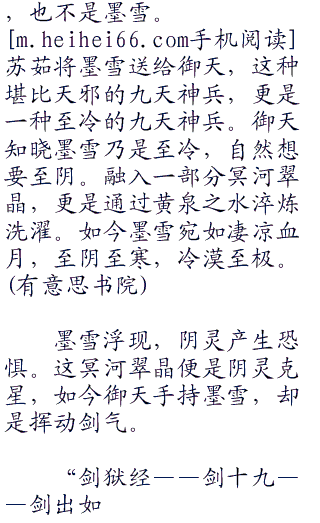 ，也不是墨雪。
[m.heihei66.com手机阅读]
苏茹将墨雪送给御天，这种
堪比天邪的九天神兵，更是
一种至冷的九天神兵。御天
知晓墨雪乃是至冷，自然想
要至阴。融入一部分冥河翠
晶，更是通过黄泉之水淬炼
洗濯。如今墨雪宛如凄凉血
月，至阴至寒，冷漠至极。
(有意思书院)
墨雪浮现，阴灵产生恐
惧。这冥河翠晶便是阴灵克
星，如今御天手持墨雪，却
是挥动剑气。
“剑狱经——剑十九—
—剑出如